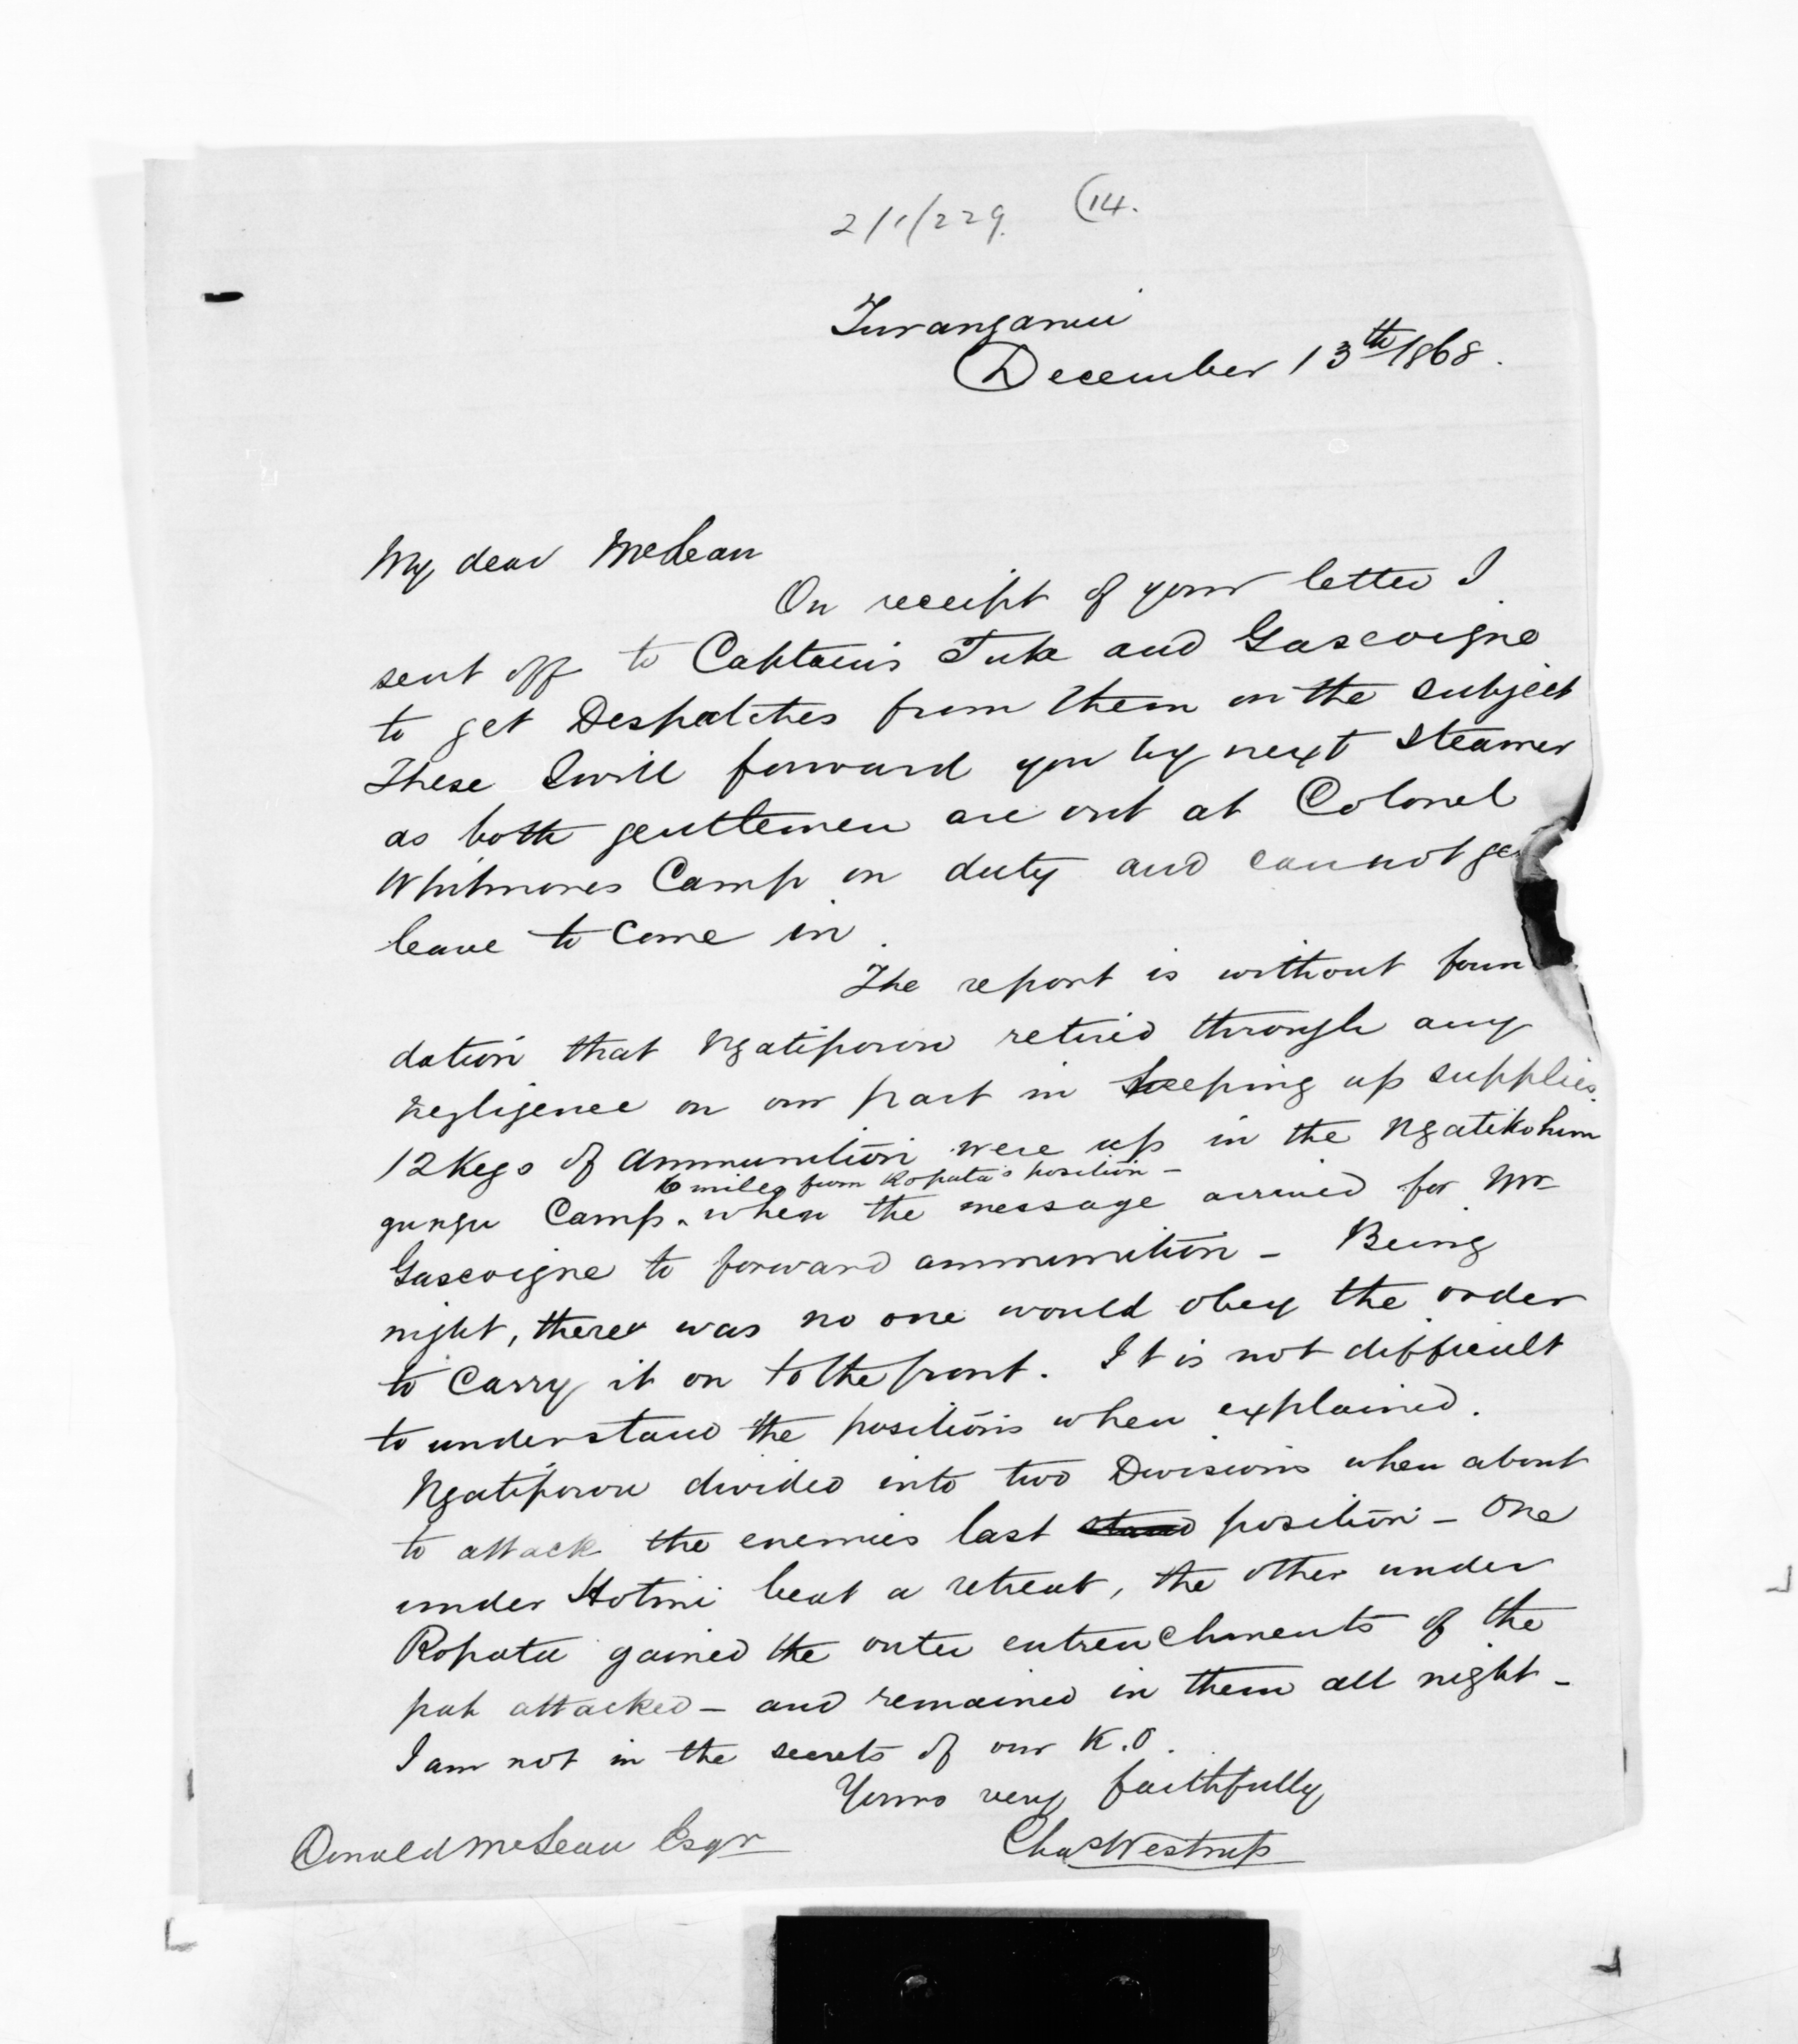 2/1/229. (14.
Turanganui
December 13th 1868.
My dear McLean
On receipt of your letter I
sent off to Captains Tuke and Gascoigne
to get Despatches from them on the subject
These I will forward you by next steamer
as both gentlemen are out at Colonel
Whitmores Camp on duty and cannot ge
leave to come in.
The report is without foun
dation that Ngatiporou retired through any
negligence on our part in keeping up supplies.
12 Kegs of ammunition were up in the Ngatikohun
6 miles from Ropata's position –
gungu Camp. when the message arrived for Mr
Gascoigne to forward ammunition – Being
night, there was no one would obey the order
to carry it on to the front. It is not difficult
to understand the positions when explained.
Ngatiporou divided into two Divisions when about
to attack the enemies last stand position – One
under Hotini beat a retreat, the other under
Ropata gained the outer entrenchments of the
pah attacked – and remained in them all night –
I am not in the secrets of our K.O.
Yours very faithfully
Chas Westrup
Donald McLean Esqr